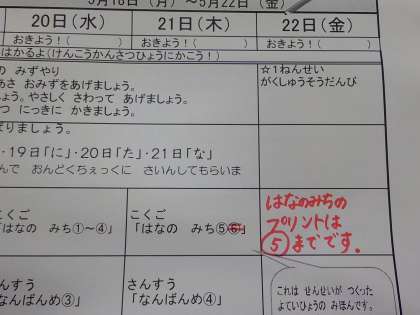 5月18日（月）〜5月22日（金）
20日（水）
21日（木）
22日（金）
おきよう！（　　　）
おきよう！（　　　）
おきよう！（　　　）
はかるよ（けんこうかんさつひょうにかこう！）
みずやり
おみずをあげましょう。
やさしく　さわって　あげましょう。
にっきに　かきましょう。
☆１ねんせい
がくしゅうそうだんび
ましょう。
・19日「に」・20日「た」・21日「な」
おんどくちぇっくに　さいんしてもらいま
こくご
「はなの　みち①〜④」
こくご
「はなの　みち⑤⑥」
はなのみちの
プリントは
⑤までです。
さんすう
「なんばんめ③」
さんすう
「なんばんめ④」
これは　せんせいが　つくった
よていひょうの　みほんです。